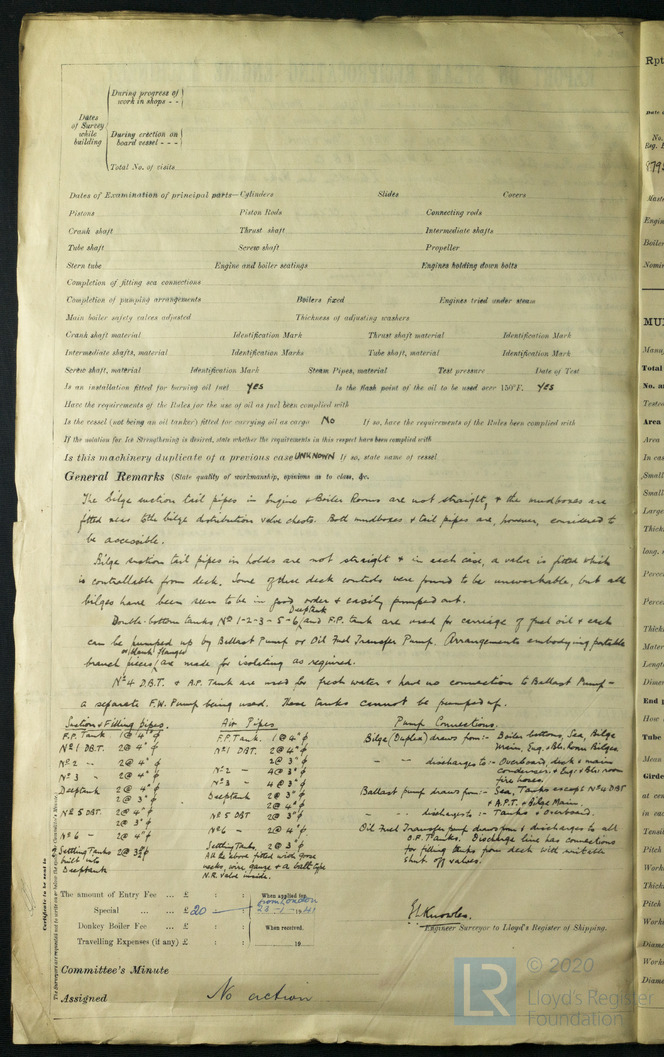 During progress of
work in shops - -
Dates
of Survey
while
building
During erection on
board vessel - - -
Total No. of visits
Dates of Examination of principal parts—Cylinders Slides Covers
Pistons Piston Rods Connecting rods
Crank shaft Thrust shaft Intermediate shafts
Tube shaft Screw shaft Propeller
Stern tube Engine and boiler seatings Engines holding down bolts
Completion of fitting sea connections
Completion of pumping arrangements Boilers fixed Engines tried under steam
Main boiler safety valves adjusted Thickness of adjusting washers
Crank shaft material Identification Mark Thrust shaft material Identification Mark
Intermediate shafts, material Identification Marks Tube shaft, material Identification Mark
Screw shaft, material Identification Mark Steam Pipes, material Test pressure Date of Test
Is an installation fitted for burning oil fuel YES Is the flash point of the oil to be used over 150°F. YES
Have the requirements of the Rules for the use of oil as fuel been complied with
Is the vessel (not being an oil tanker) fitted for carrying oil as cargo NO If so, have the requirements of the Rules been complied with
If the notation for Ice Strengthening is desired, state whether the requirements in this respect have been complied with
Is this machinery duplicate of a previous case UNKNOWN If so, state name of vessel
General Remarks (State quality of workmanship, opinions as to class, &c.
The bilge suction tail pipes in Engine & Boiler Rooms are not straight, & the mudboxes are
fitted near to the bilge distribution valve chests. Both mudboxes & tail pipes are, however, considered to
be accessible.
Bilge suction tail pipes in holds are not straight & in each case, a valve is fitted which
is controllable from deck. Some of these deck controls were found to be unworkable, but all
bilges have been seen to be in good order & easily pumped out.
Deeptank
Double-bottom tanks Nº 1-2-3-5-6, and F.P. tank are used for carriage of fuel oil & each
can be pumped up by Ballast Pump or Oil Fuel Transfer Pump. Arrangements embodying portable
or blank flanges
branch pieces, are made for isolating as required.
Nº 4 D.B.T. & A.P. Tank are used for fresh water & have no connection to Ballast Pump -
a separate F.W. Pump being used. These tanks cannot be pumped up.
Suction & Filling Pipes. Air Pipes Pump Connections.
F.P. Tank 1@4"φ F.P. Tank. 1@4"φ Bilge (Duplex) draws from:- Boiler bottoms, Sea, Bilge
Nº1 DBT. 2@4"φ Nº1 DBT. 2@4"φ Main, Eng. & Blr. Room Bilges
2@3"φ
Nº2 - 2@4"φ Nº2 - 4@3"φ - - discharges to:- Overboard, deck & main
Nº3 - 2@4"φ Nº3 - 4@3"φ condenser, & Eng. & Blr. room
fire hoses.
Deeptank 2@4"φ Deeptank 2@3"φ Ballast pump draws from:- Sea, Tanks except Nº4 DBT
2@3"φ 2@4"φ & A.P.T. & Bilge Main.
Nº5 DBT 2@4"φ Nº5 DBT 2@3"φ - - discharges to:- Tanks & Overboard.
2@3"φ
Nº6 - 2@4"φ Nº6 - 2@4"φ Oil Fuel Transfer pump draws from & discharges to all
Settling Tanks 2@3½φ Settling Tks. 2@3"φ O.F. Tanks. Discharge line has connections
built into All the above fitted with goose for filling tanks from deck with suitable
Deeptank necks, wire gauze & a ball type shut off valves.
N.R. valve inside.
The amount of Entry Fee ... £ : : When applied for,
from London
Special ... ... £ 20 : : 23-1-1941
Donkey Boiler Fee ... £ : : When received,
Travelling Expenses (if any) £ : : 19
Engineer Surveyor to Lloyd's Register of Shipping.
Committee's Minute
Assigned No action
Certificate to be sent to
LR
© 2020
Lloyd's Register
Foundation
Rpt
MU